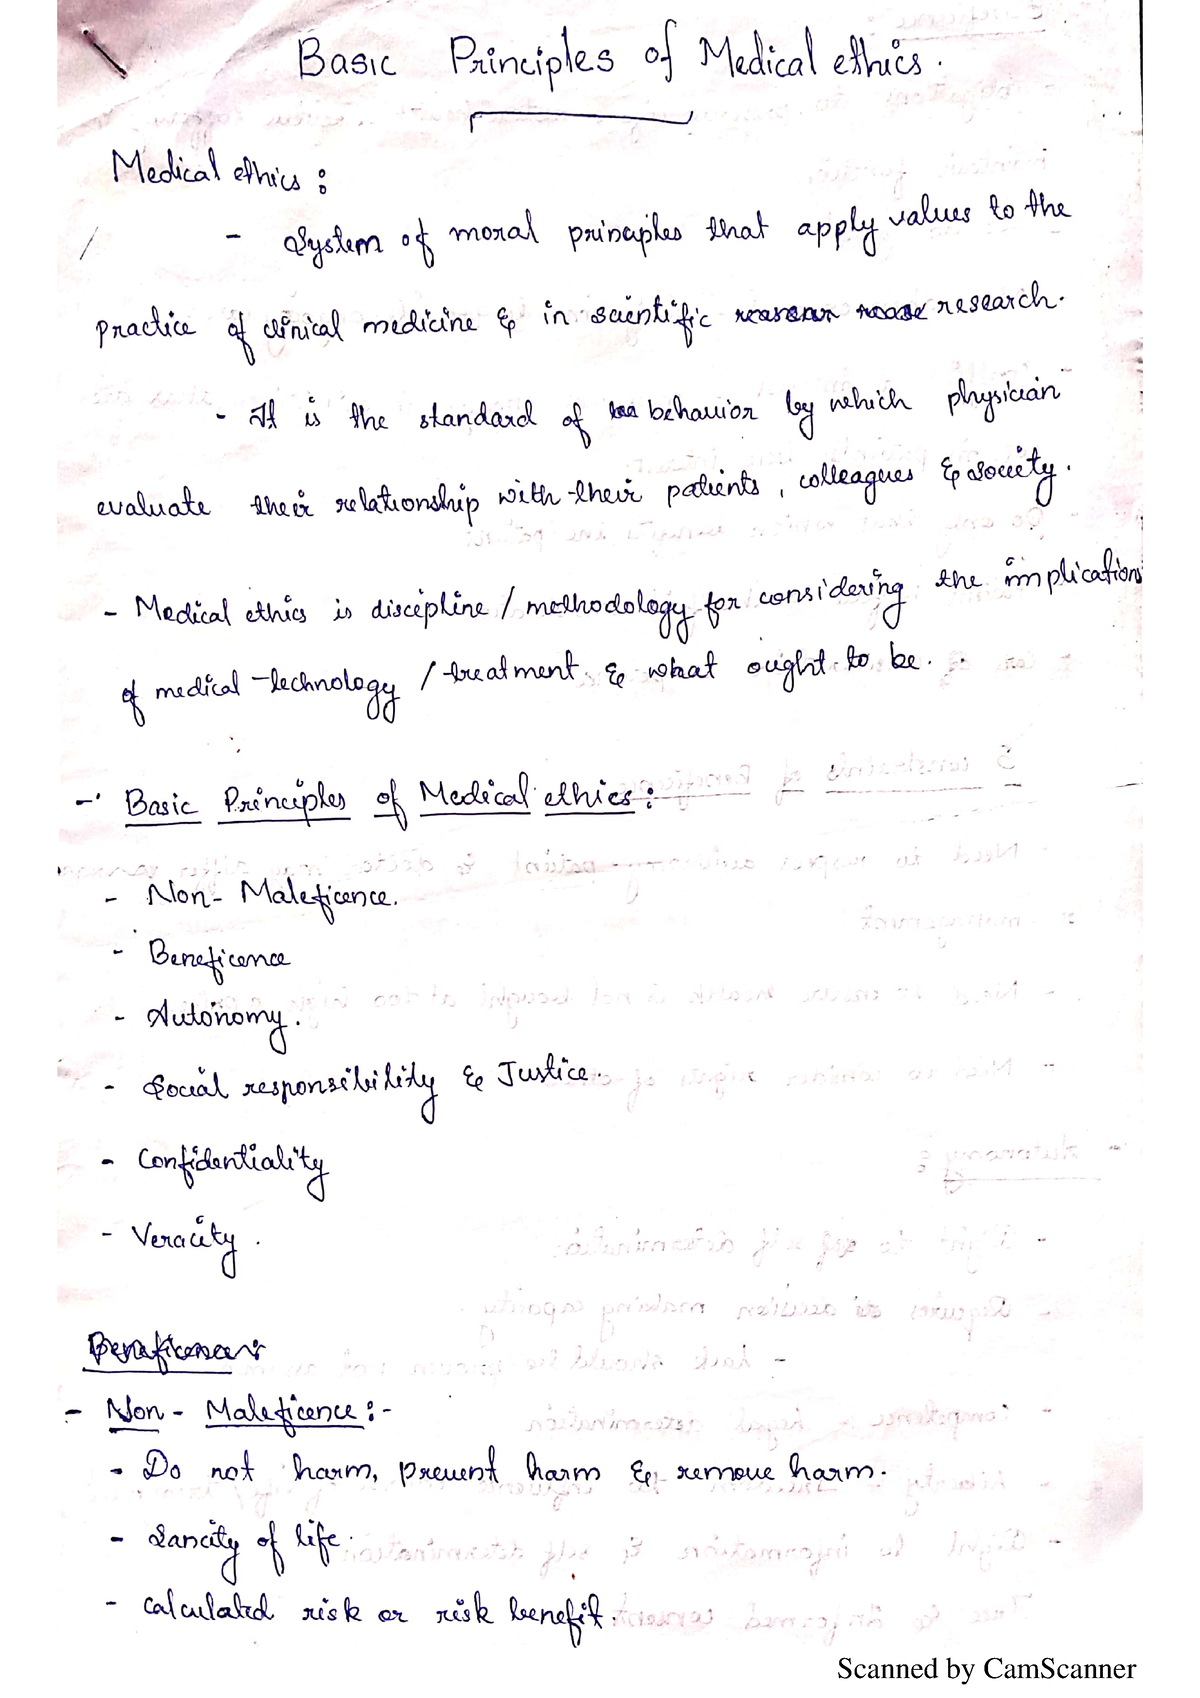 Basic Principles of Medical ethics.
Medical ethics :
- System of moral principles that apply values to the
practice of clinical medicine & in scientific research.
- It is the standard of behavior by which physician
evaluate their relationship with their patients, colleagues & society.
- Medical ethics is discipline / methodology for considering the implications
of medical technology / treatment & what ought to be.
- Basic Principles of Medical ethics :
- Non- Maleficence.
- Beneficence
- Autonomy.
- Social responsibility & Justice.
- Confidentiality
- Veracity.
- Non - Maleficence :-
- Do not harm, prevent harm & remove harm.
- Sancity of life.
- calculated risk or risk benefit.
Scanned by CamScanner